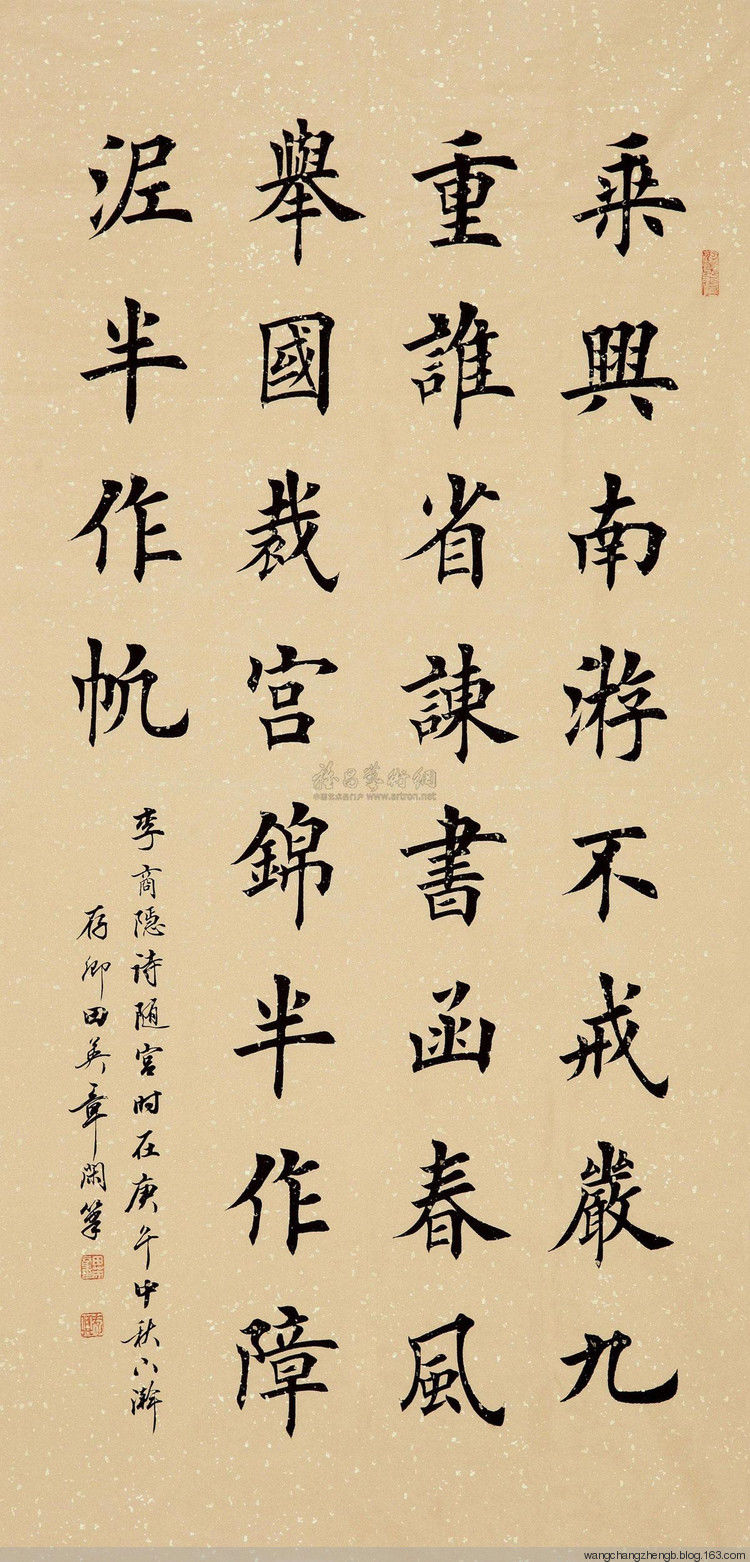 乘興南游不戒嚴九
重誰省諫書函春風
舉國裁宮錦半作障
泥半作帆
李商隐诗随宫时在庚午中秋下澣
存卿田英章閑筆
www.artron.net
wangchangzhengb.blog.163.com